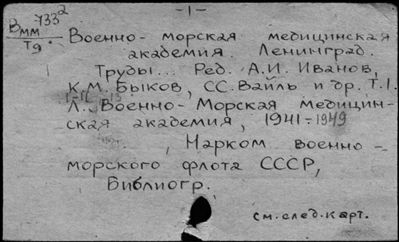 - 1 -
Вмм 733²
Т9
Военно-морская медицинская
академия. Ленинград.
Труды... Ред. А.И. Иванов,
К.М. Быков, С.С. Вайль и др. Т.1.
Л. Военно-Морская медицин-
ская академия, 1941-1949
, Нарком военно-
морского флота СССР,
Библиогр.
см. след. карт.